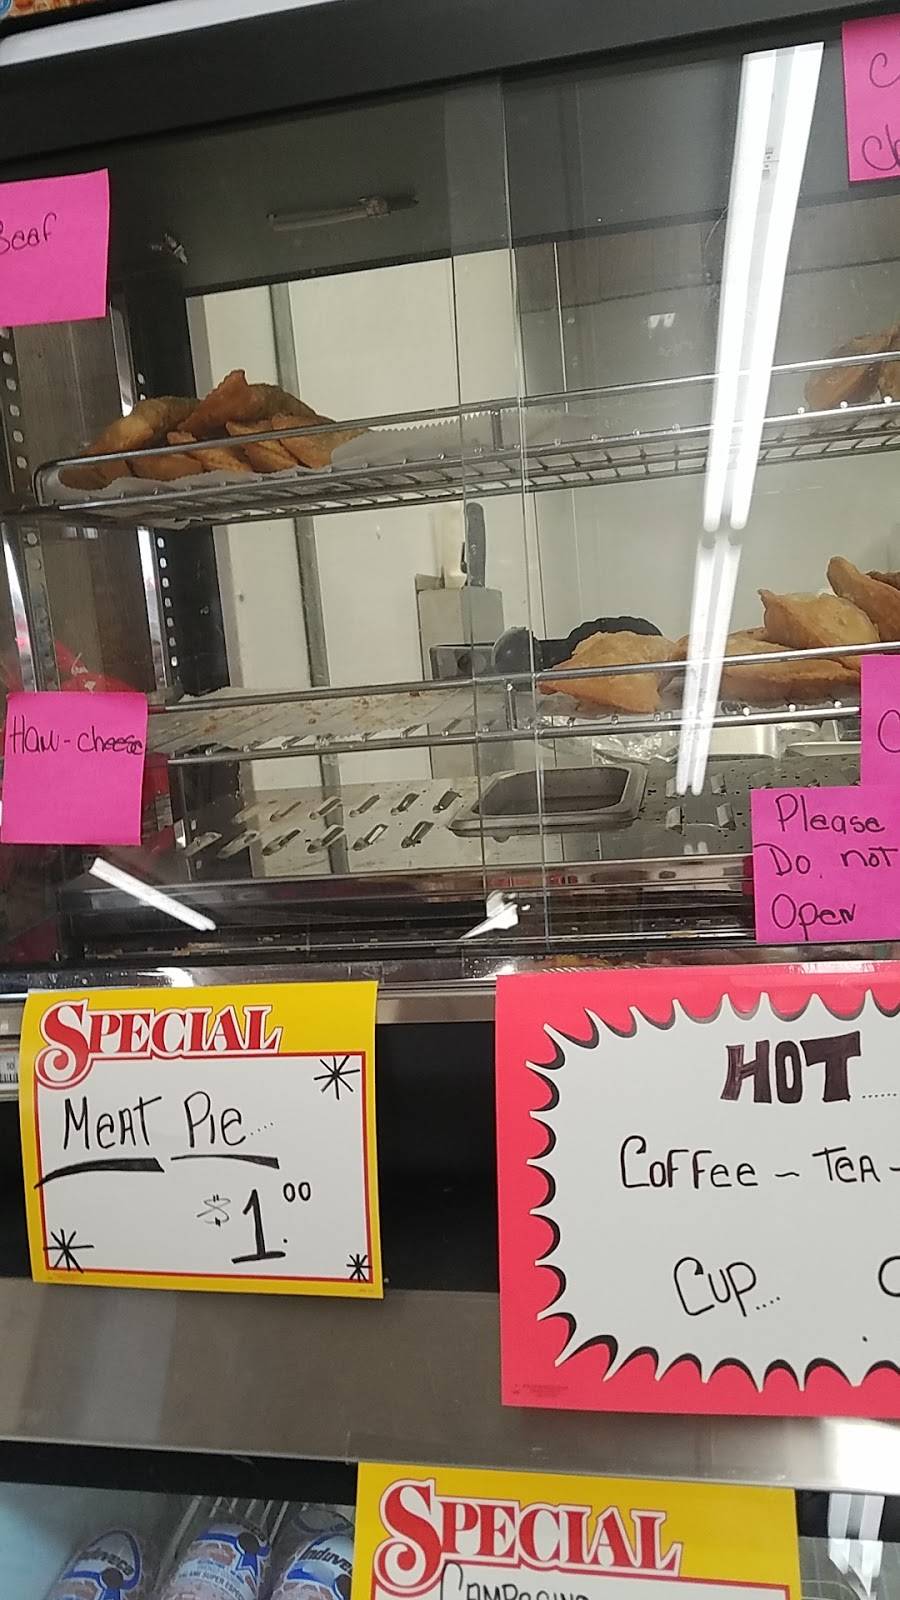 Beef
Ham-cheese
Please
Do not
Open
SPECIAL
MEAT PIE....
$1.00
HOT.....
COFFEE - TEA -
CUP....
SPECIAL
Induve